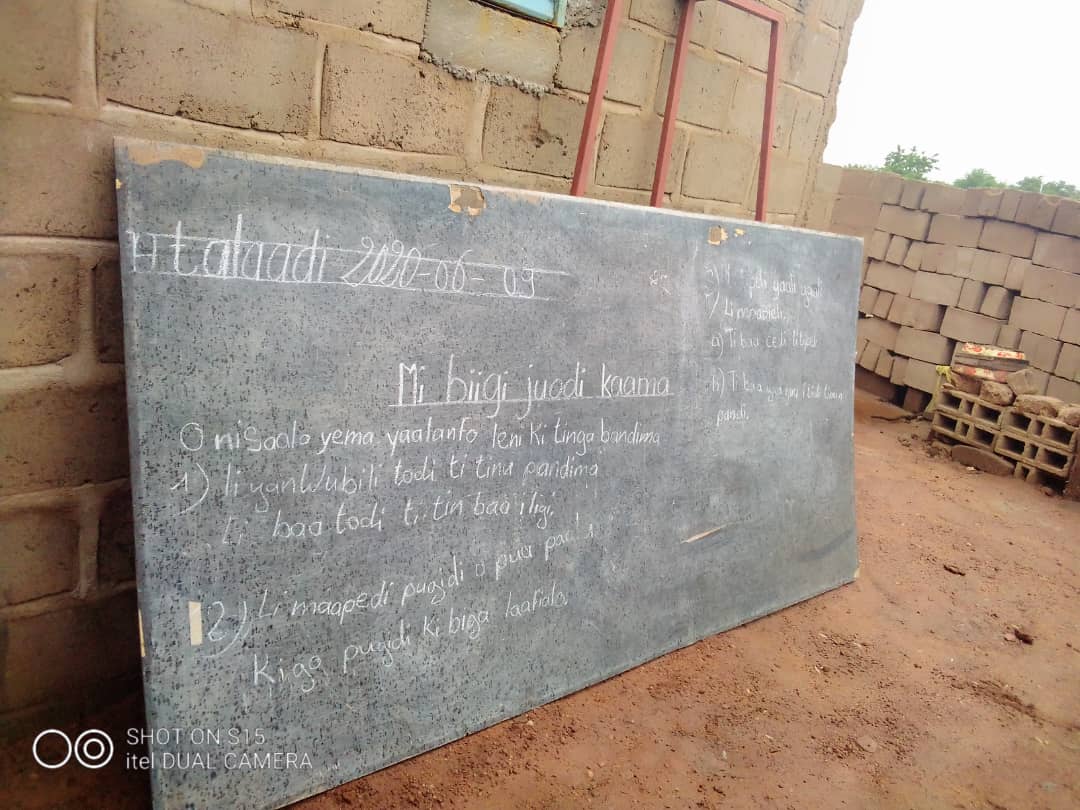 talaadi 2020-06-09
Mi biigi juodi kaama
O nisaalo yema yaalanfo leni ki tinga bandima
1) li yanwubili todi ti tinu pandima
Li baa todi ti tin baa iligi,
2) Li maapedi pugidi o pua paali
Ki go pugidi ki biga laafialo,
a) Ti baa cedi
b) Ti baa
pandi.
SHOT ON S15
itel DUAL CAMERA